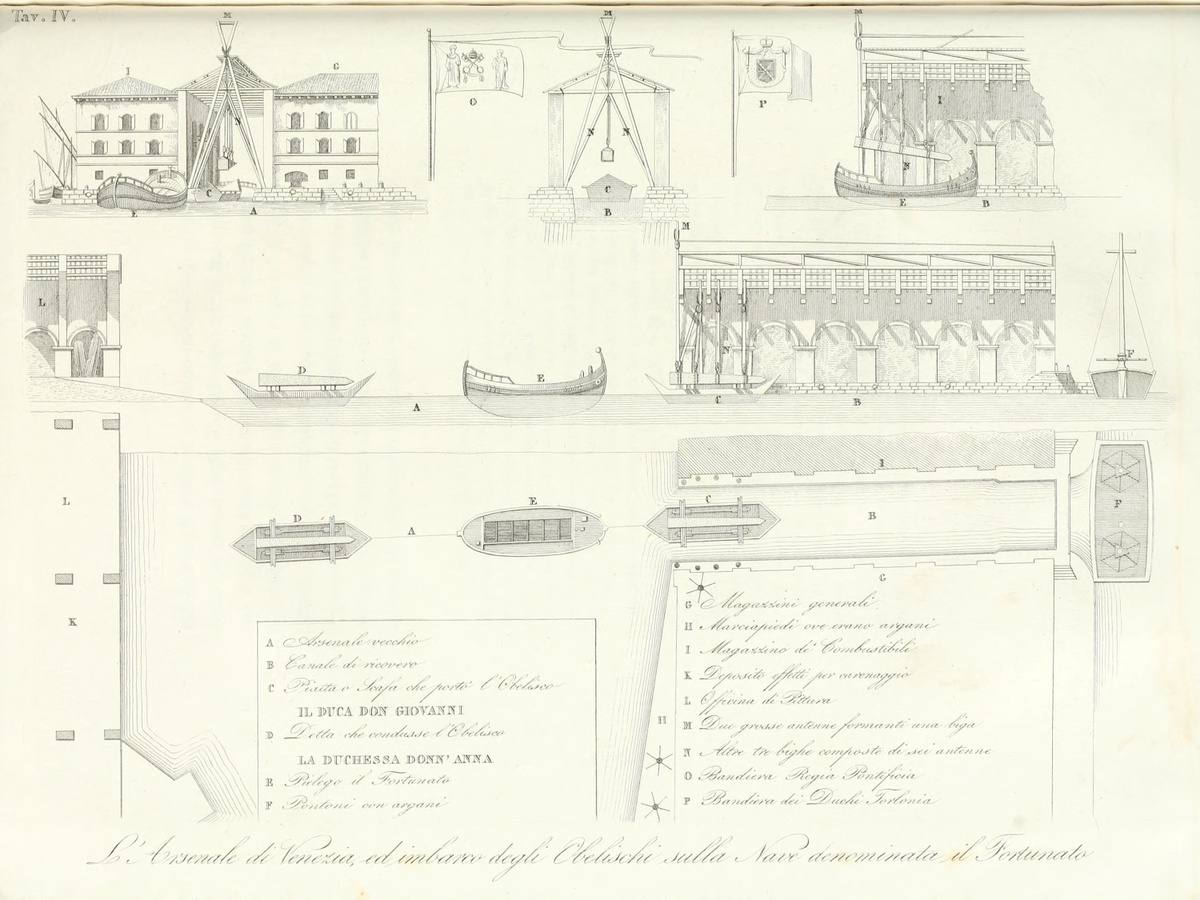 Tav. IV.
M
I
G
N
C
E
A
O
M
N
N
C
B
P
M
I
N
E
B
L
D
A
E
M
N
C
B
F
L
K
D
A
E
I
C
B
G
F
H
A Arsenale vecchio
B Canale di ricovero
C Piatta o Scafa che portò l'Obelisco
IL DUCA DON GIOVANNI
D Detta che condusse l'Obelisco
LA DUCHESSA DONN' ANNA
E Pielego il Fortunato
F Pontoni con argani
G Magazzini generali
H Marciapiedi ove erano argani
I Magazzino di Combustibili
K Deposito effetti per carenaggio
L Officina di Pittura
M Due grosse antenne formanti una biga
N Altre tre bighe composte di sei antenne
O Bandiera Regia Pontificia
P Bandiera dei Duchi Torlonia
L'Arsenale di Venezia, ed imbarco degli Obelischi sulla Nave denominata il Fortunato